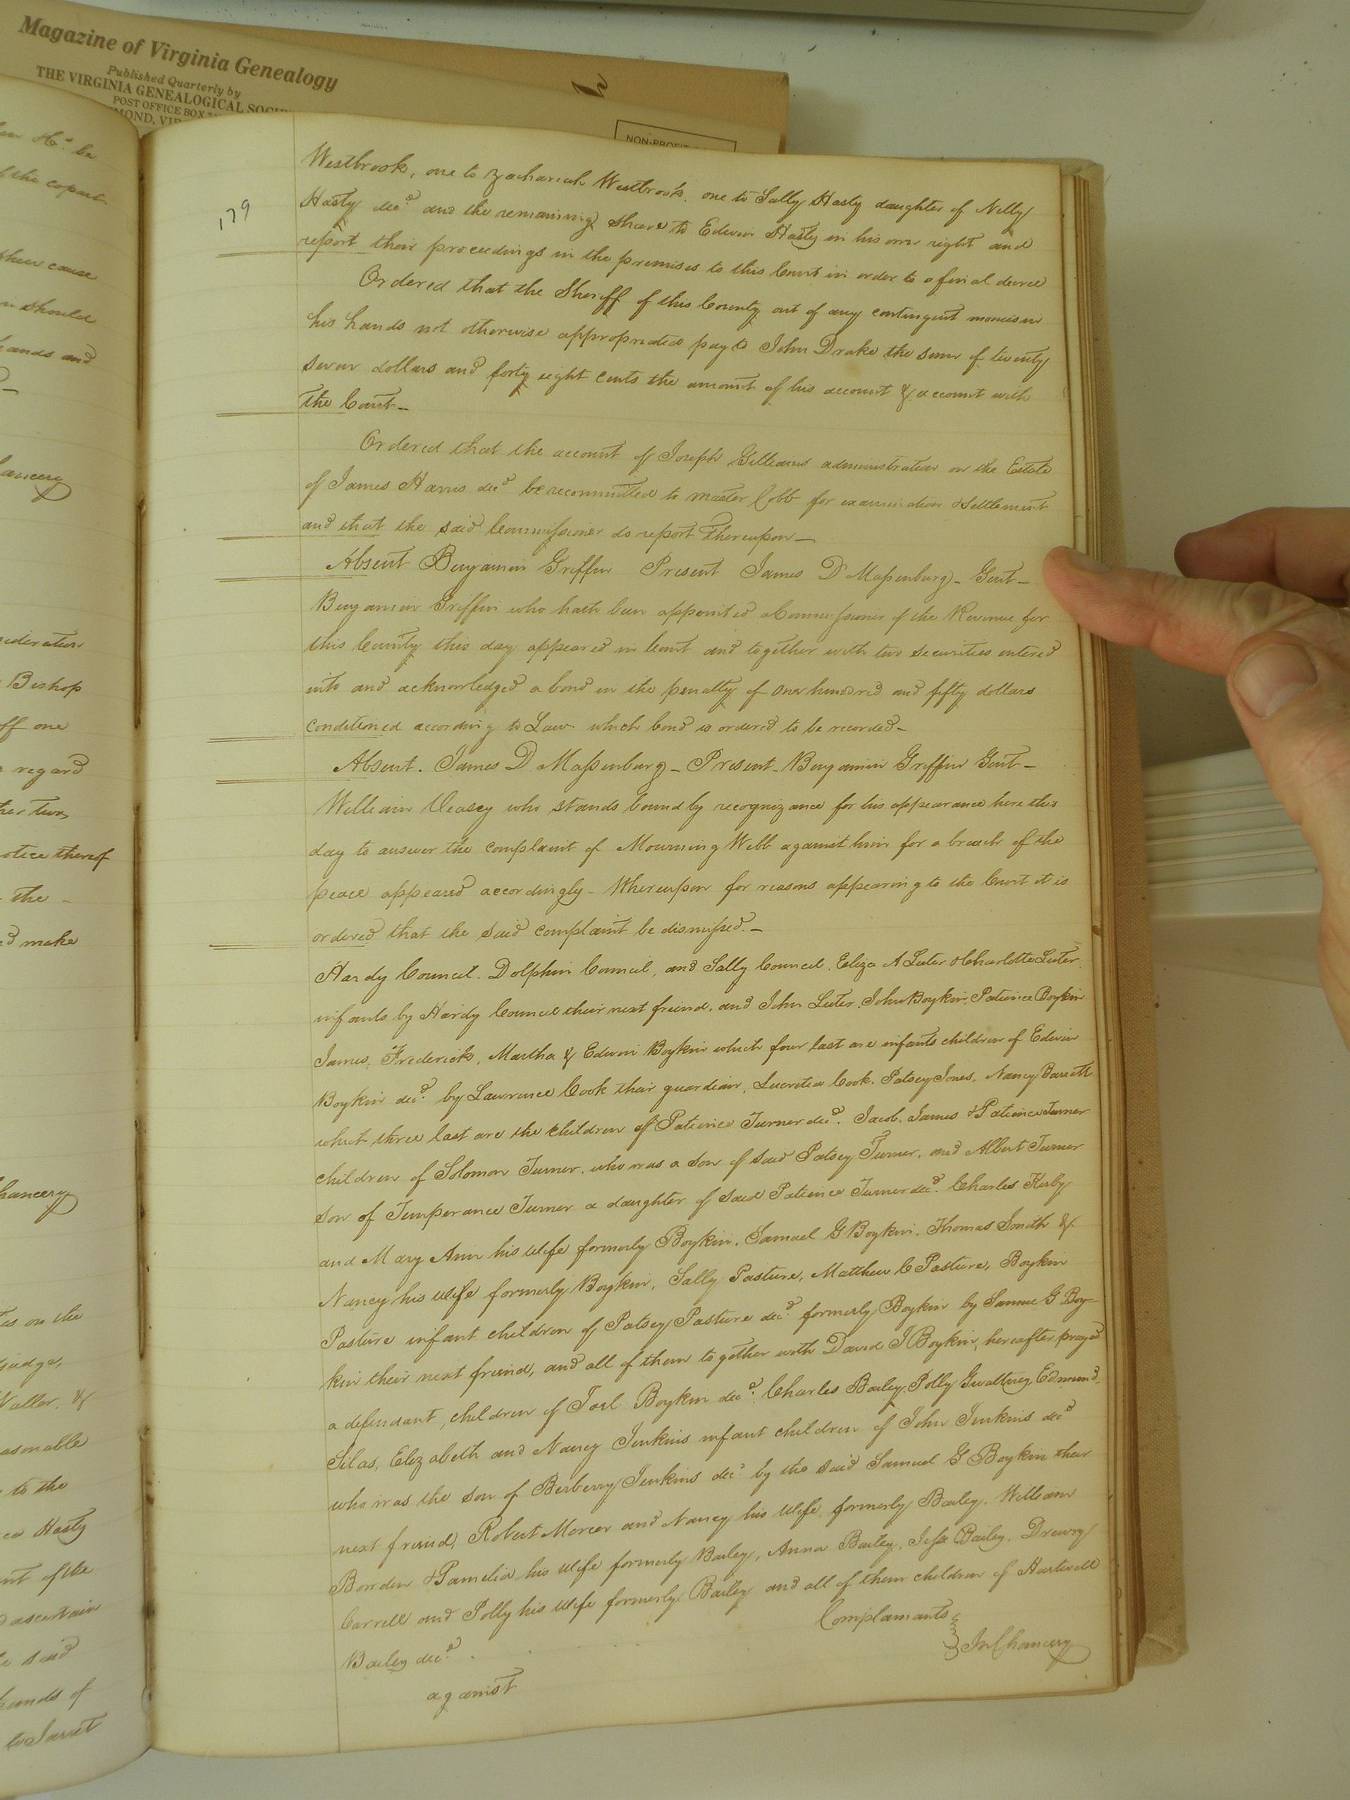 Magazine of Virginia Genealogy
Published Quarterly by
THE VIRGINIA GENEALOGICAL SOCI
POST OFFICE BOX
MOND, VIR
NON-PROFIT
179
Westbrook, one to Zachariah Westbrook, one to Sally Hasty daughter of Nelly
Hasty decd. and the remaining share to Edwin Hasty in his own right and
report their proceedings in the premises to this Court in order to a final decree
Ordered that the Sheriff of this County out of any contingent monies in
his hands not otherwise appropriated pay to John Drake the sum of twenty
seven dollars and forty eight cents the amount of his account & account with
the Court—
Ordered that the account of Joseph Gilliams administration on the Estate
of James Harris decd. be recommitted to master Cobb for examination & Settlement
and that the said Commissioner do report thereupon—
Absent Benjamin Griffin Present James D Massenburg— Gent—
Benjamin Griffin who hath been appointed a Commissioner of the Revenue for
this County this day appeared in Court and together with two securities entered
into and acknowledged a bond in the penalty of one hundred and fifty dollars
conditioned according to Law which bond is ordered to be recorded—
Absent. James D Massenburg— Present— Benjamin Griffin Gent—
William Veasey who stands bound by recognizance for his appearance here this
day to answer the complaint of Mourning Webb against him for a breach of the
peace appeared accordingly— Whereupon for reasons appearing to the Court it is
ordered that the said complaint be dismissed.—
Hardy Council. Dolphin Council, and Sally Council, Eliza A Luter & Charlotte Luter
infants by Hardy Council their next friend, and John Luter, John Boykin, Patience Boykin
James, Frederick, Martha & Edwin Boykin which four last are infants children of Edwin
Boykin decd. by Lawrence Cook their guardian, Lucretia Cook, Patsey Jones, Nancy Barrett
which three last are the children of Patience Turner decd. Jacob, James & Patience Turner
children of Solomon Turner, who was a son of said Patsey Turner, and Albert Turner
son of Temperance Turner a daughter of said Patience Turner decd. Charles Kerby
and Mary Ann his wife formerly Boykin, Samuel G Boykin, Thomas Smith &
Nancy his wife formerly Boykin, Sally Pasture, Matthew C Pasture, Boykin
Pasture infant children of Patsey Pasture decd. formerly Boykin by Samuel G Boy-
kin their next friend, and all of them together with David J Boykin, hereafter prayed
a defendant, children of Joel Boykin decd. Charles Bailey, Polly Gwaltney, Edmund,
Silas, Elizabeth and Nancy Jenkins infant children of John Jenkins decd
who was the son of Berberry Jenkins decd by the said Samuel G Boykin their
next friend, Robert Mercer and Nancy his wife, formerly Bailey. William
Bowden & Pamelia his wife formerly Bailey, Anna Bailey, Jesse Bailey, Drewry
Carrell and Polly his wife formerly Bailey and all of them children of Hartwell
Bailey decd. Complainants
against In Chancery